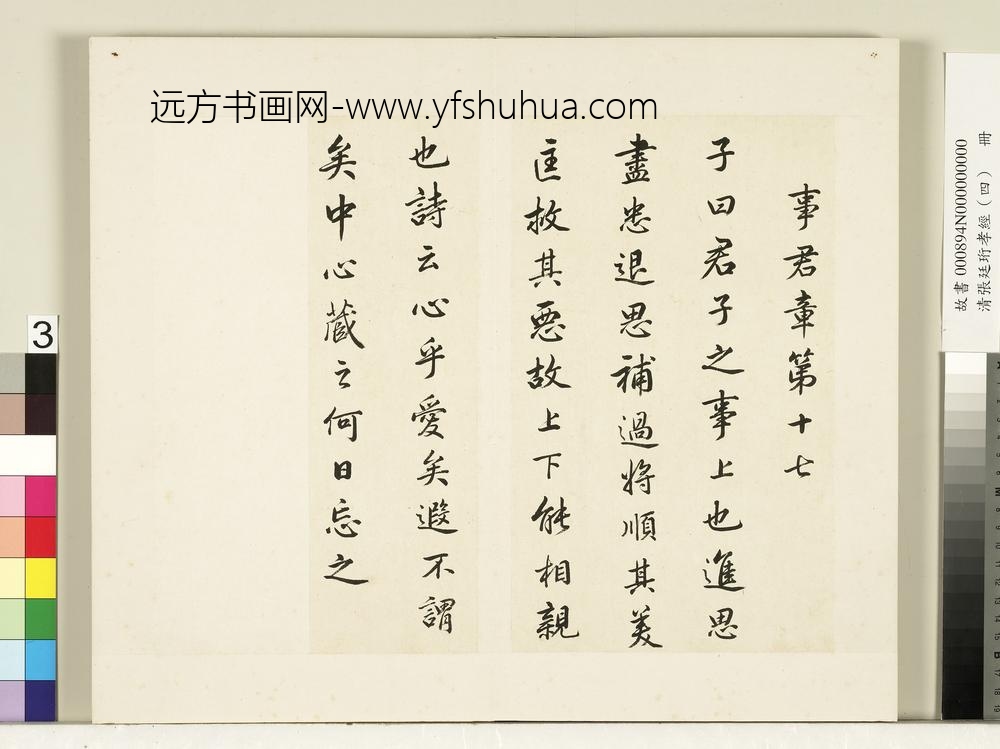 远方书画网-www.yfshuhua.com
事君章第十七
子曰君子之事上也進思
盡忠退思補過將順其美
匡救其惡故上下能相親
也詩云心乎愛矣遐不謂
矣中心藏之何日忘之
故書 000894N000000000
清張廷珩孝經(四) 冊
3